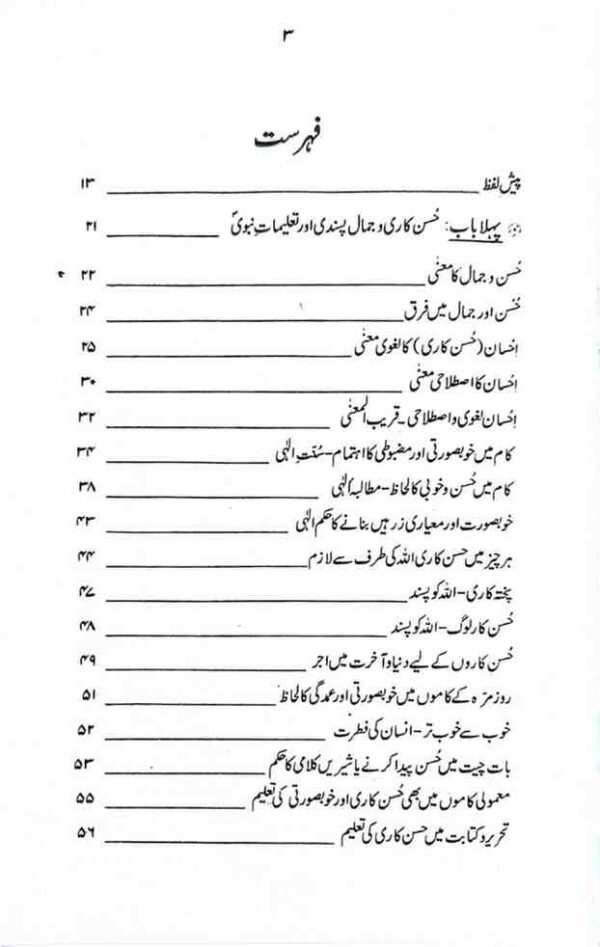 ۳
فہرست
پیش لفظ ۱۳
پہلا باب: حُسن کاری و جمال پسندی اور تعلیماتِ نبویؐ ۲۱
حُسن و جمال کا معنٰی ۲۲
حُسن اور جمال میں فرق ۲۴
اِحسان (حُسن کاری) کا لغوی معنٰی ۲۵
اِحسان کا اصطلاحی معنٰی ۳۰
اِحسان لغوی و اصطلاحی - قریب المعنٰی ۳۲
کام میں خوبصورتی اور مضبوطی کا اہتمام - سُنّتِ الٰہی ۳۴
کام میں حُسن و خوبی کا لحاظ - مطالبۂ الٰہی ۳۸
خوبصورت اور معیاری زرہیں بنانے کا حکم الٰہی ۴۳
ہر چیز میں حسن کاری اللہ کی طرف سے لازم ۴۴
پختہ کاری - اللہ کو پسند ۴۷
حُسن کار لوگ - اللہ کو پسند ۴۸
حُسن کاروں کے لیے دنیا و آخرت میں اجر ۴۹
روز مرّہ کے کاموں میں خوبصورتی اور عمدگی کا لحاظ ۵۱
خوب سے خوب تر - انسان کی فطرت ۵۲
بات چیت میں حُسن پیدا کرنے یا شیریں کلامی کا حکم ۵۳
معمولی کاموں میں بھی حُسن کاری اور خوبصورتی کی تعلیم ۵۵
تحریر و کتابت میں حسن کاری کی تعلیم ۵۶